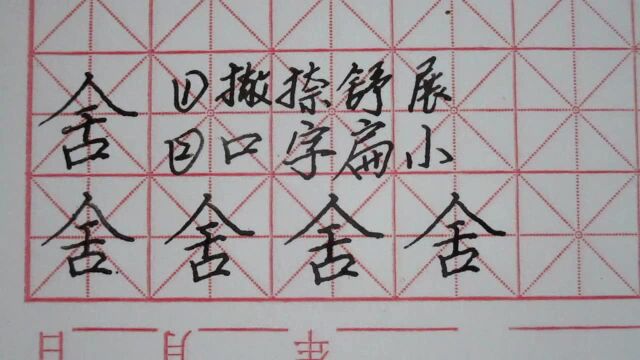 舍 ①撇捺舒展
②口字扁小
舍 舍 舍 舍
年 月 日